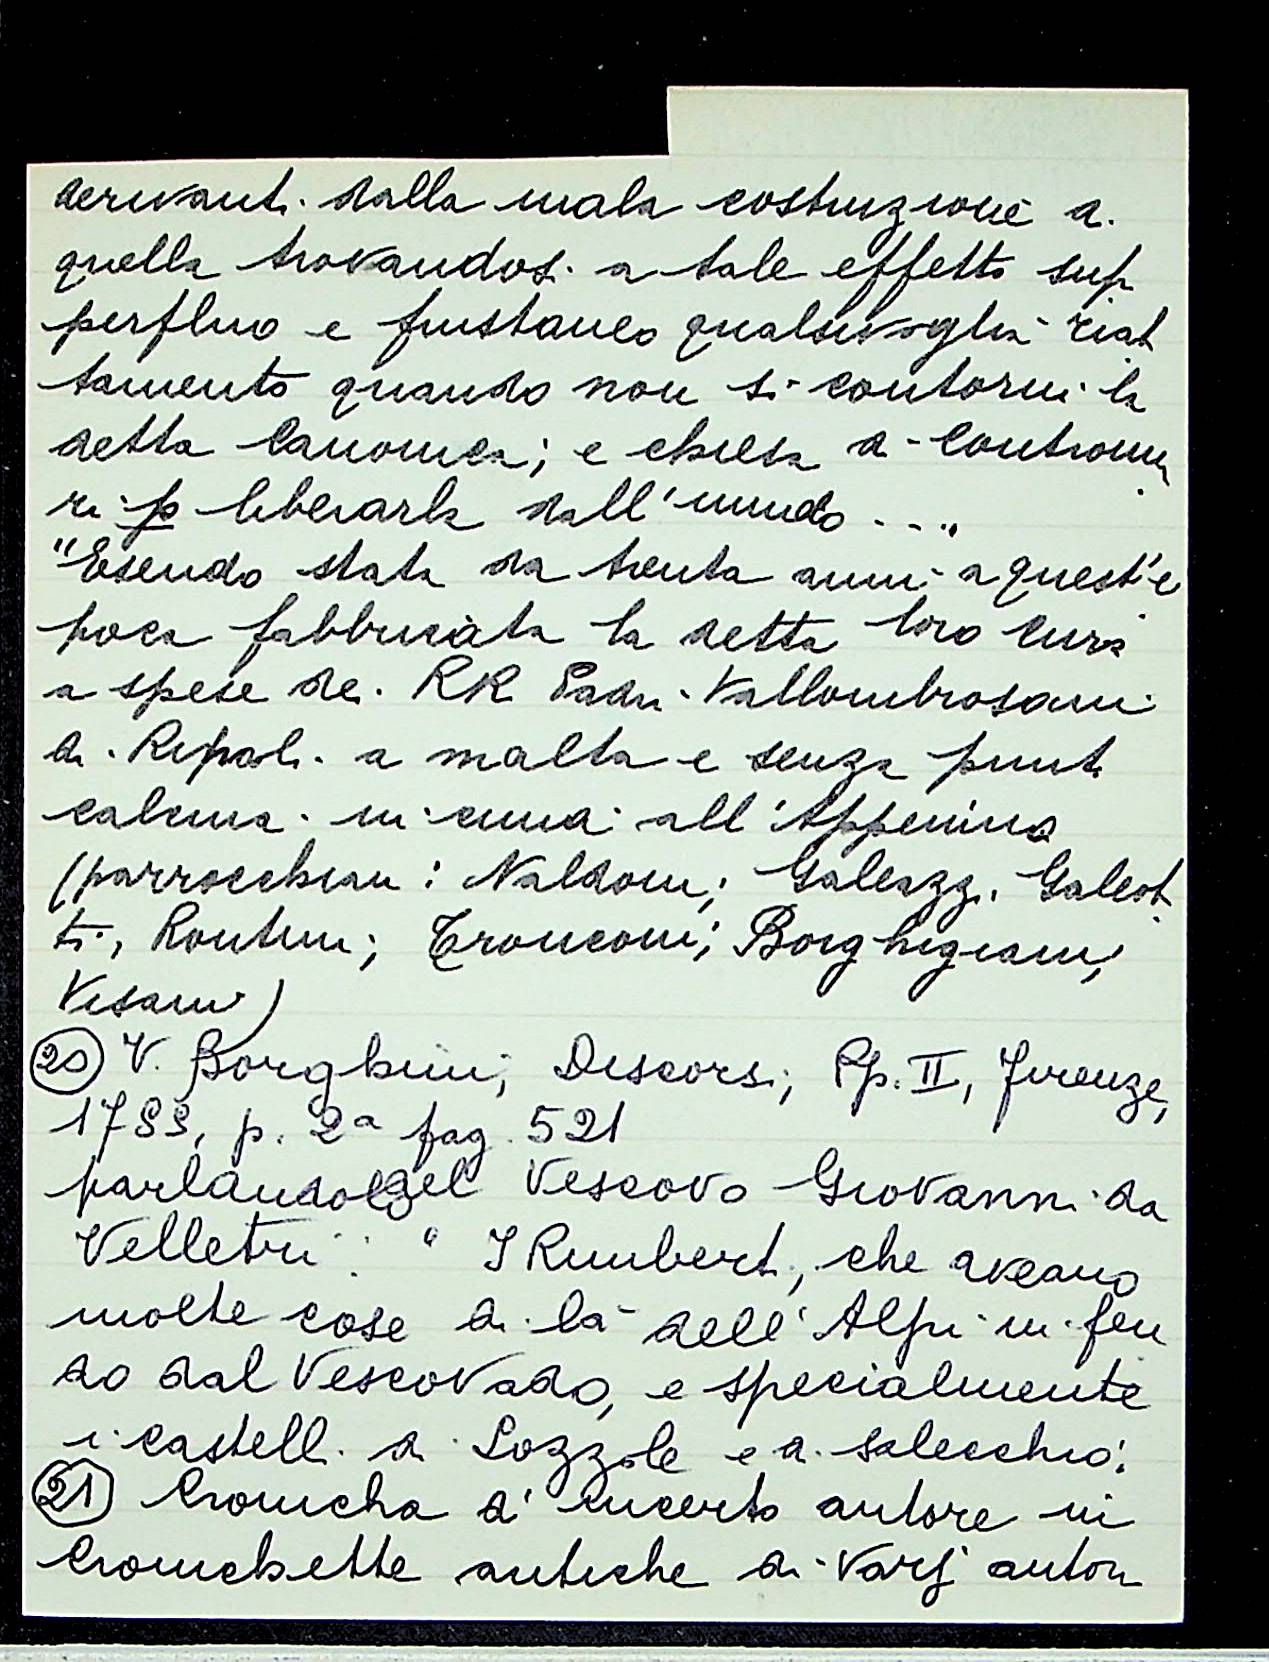 derivanti dalla mala costruzione di
quella trovandosi a tale effetto sup
perfluo e frustaneo qualsivoglia riat
tamento quando non si contorni la
detta Canonica; e chiesa di Contromu
ri p liberarla dall'umido ..."
"Esendo stata da trenta anni a quest'e
poca fabbricata la detta loro cura
a spese de. RR Padri Vallombrosani
di Ripoli a malta e senza punta
calcina in cima all'Appenino
(parrocchiani: Naldoni; Galeazzi, Galeot
ti, Rontini; Tronconi; Borghigiani;
Visani)
20 V. Borghini; Discorsi; Pp. II, Firenze,
1755, p. 2a pag. 521
parlando del Vescovo Giovanni da
Velletri: " I Rimberti, che aveano
molte cose di là dell'Alpi in feu
do dal Vescovado, e specialmente
i castelli di Lozzole e di Salecchio:
21 Cronicha d'incerto autore in
Cronichette antiche di varj autori